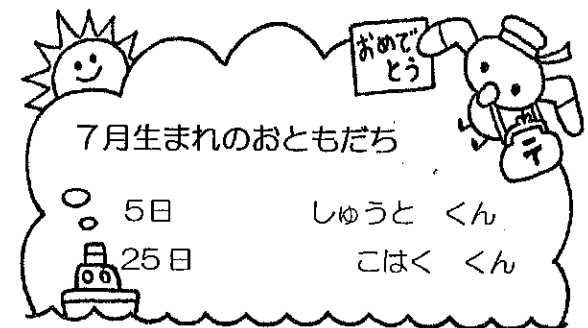 おめで
とう
7月生まれのおともだち
5日 しゅうと くん
25日 こはく くん
〒